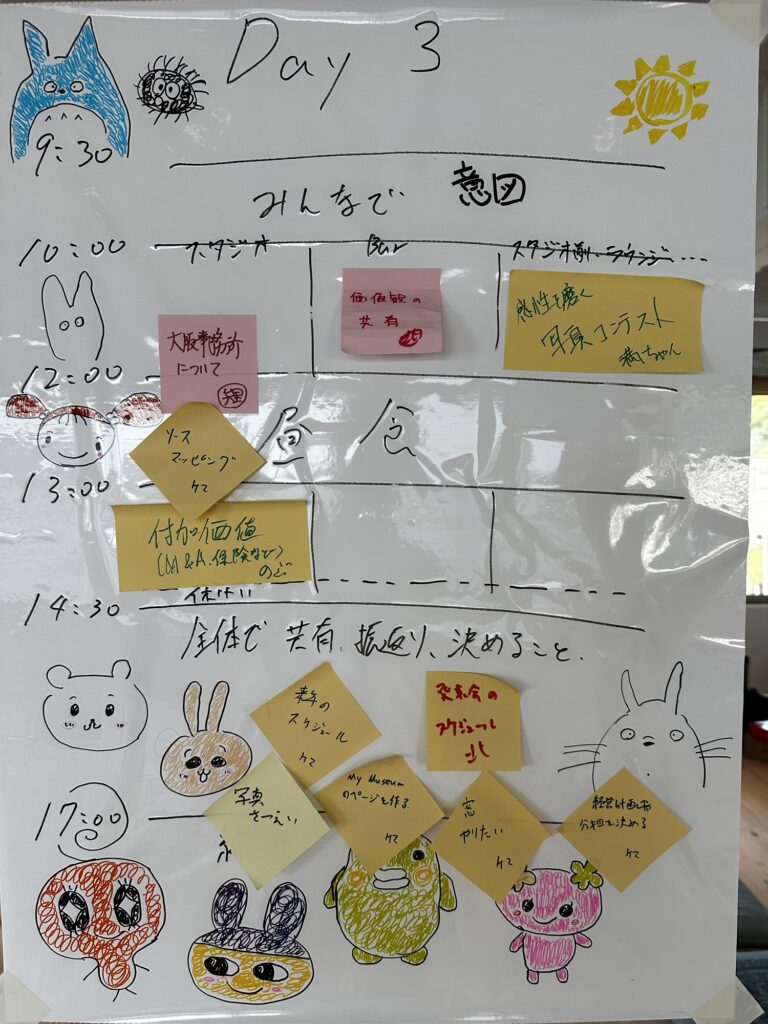 Day 3
9:30
みんなで 意図
10:00
スタジオ
スタジオ横・ラウンジ...
価値観の
共有
感性を磨く
写真コンテスト
満ちゃん
大阪事務所
について
強
12:00
昼食
ソース
マッピング
ケマ
13:00
付加価値
(M&A、保険など)
のぶ
14:30
全体で共有、振返り、決めること、
来年の
スケジュール
ケマ
発表会の
スケジュール
写真
さつえい
My Museum
のページを作る
ケマ
窓
やりたい
ケマ
経営計画書
分担を決める
ケマ
17:00